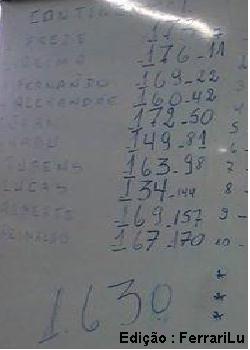 CONTINENTAL
FREDE 177-7
176-11
FERNANDO 169-22
ALEXANDRE 160-42
172-50
149-81 6-
RUBENS 163-98 7-
LUCAS 134-144 8-
ROBERTO 169-157 9-
REINALDO 167-170 10-
1.630
Edição : FerrariLu